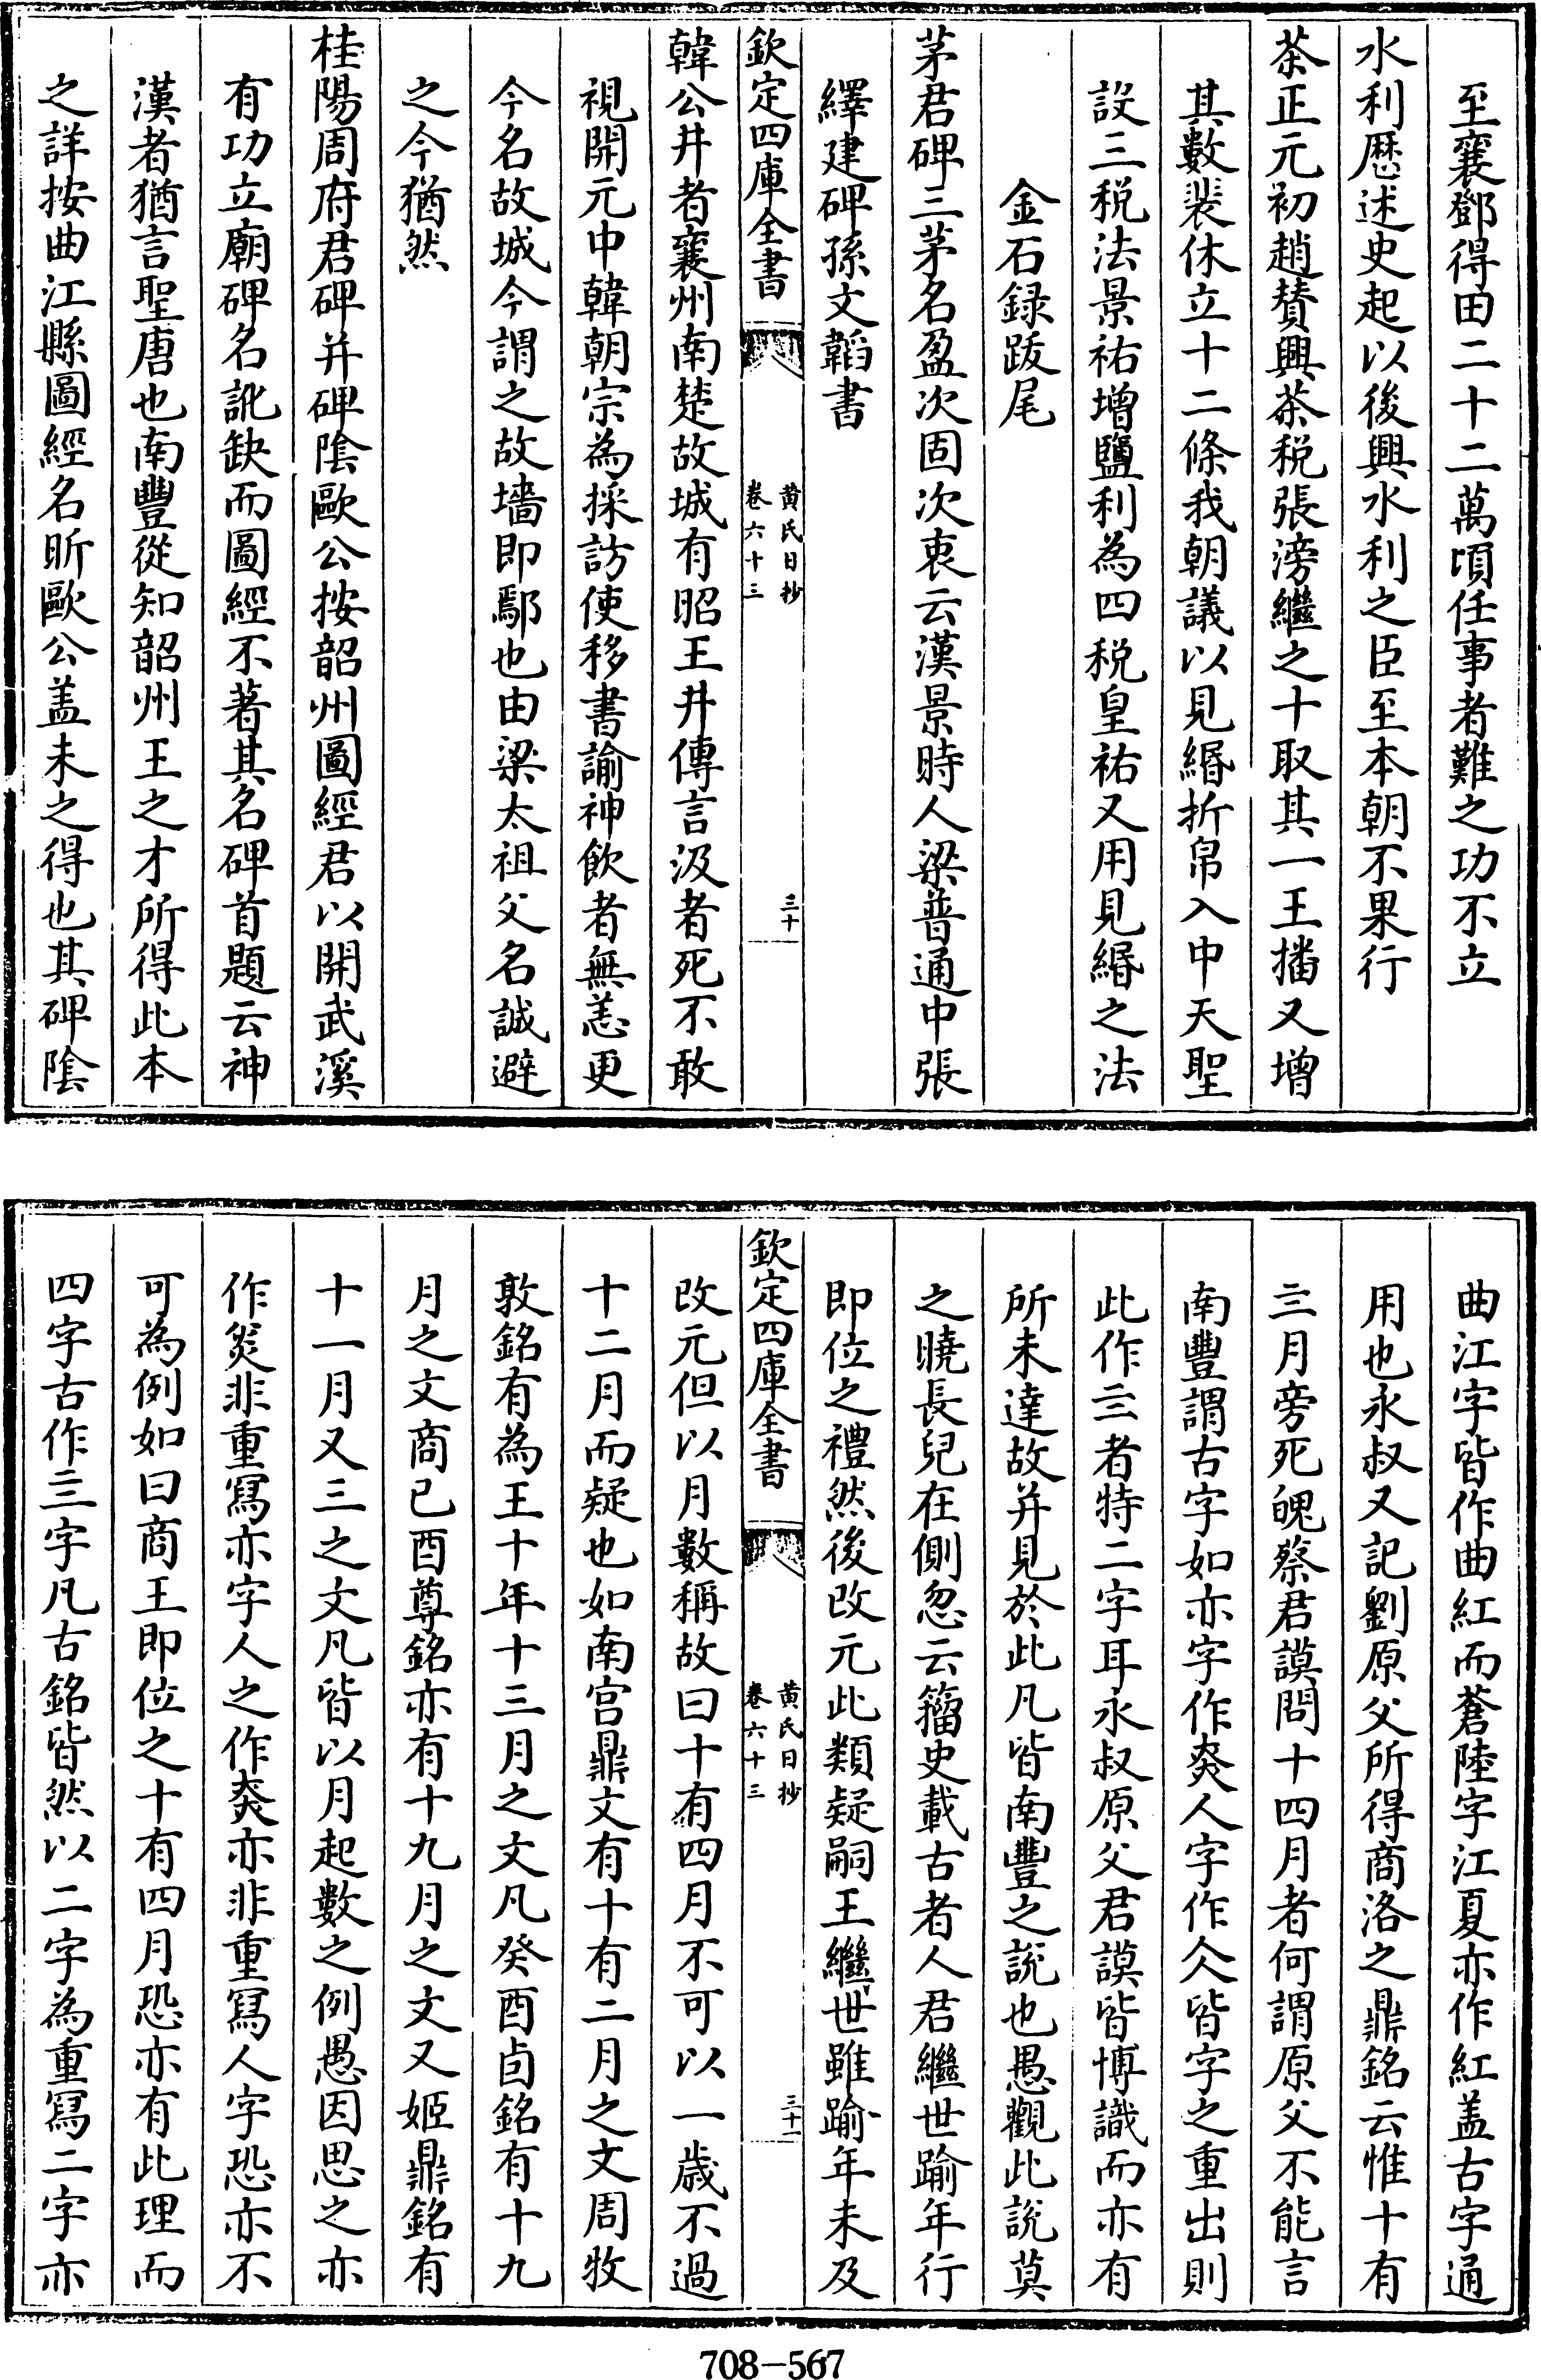 至襄鄧得田二十二萬頃任事者難之功不立
水利歴述史起以後興水利之臣至本朝不果行
茶正元初趙賛興茶税張滂繼之十取其一王播又增
其數裴休立十二條我朝議以見緡折帛入中天聖
設三税法景祐增鹽利為四税皇祐又用見緡之法
金石録跋尾
茅君碑三茅名盈次固次衷云漢景時人梁普通中張
繹建碑孫文韜書
欽定四庫全書
黄氏日抄
卷六十三
三十
韓公井者襄州南楚故城有昭王井傳言汲者死不敢
視開元中韓朝宗為採訪使移書諭神飲者無恙更
今名故城今謂之故墻即鄢也由梁太祖父名誠避
之今猶然
桂陽周府君碑并碑陰歐公按韶州圖經君以開武溪
有功立廟碑名訛缺而圖經不著其名碑首題云神
漢者猶言聖唐也南豐從知韶州王之才所得此本
之詳按曲江縣圖經名昕歐公盖未之得也其碑陰
曲江字皆作曲紅而蒼陸字江夏亦作紅盖古字通
用也永叔又記劉原父所得商洛之鼎銘云惟十有
三月旁死魄蔡君謨問十四月者何謂原父不能言
南豐謂古字如亦字作㚐人字作仌皆字之重出則
此作亖者特二字耳永叔原父君謨皆博識而亦有
所未達故并見於此凡皆南豐之說也愚觀此說莫
之曉長兒在側忽云籀史載古者人君繼世踰年行
即位之禮然後改元此類疑嗣王繼世雖踰年未及
欽定四庫全書
黄氏日抄
卷六十三
三十一
改元但以月數稱故曰十有四月不可以一歲不過
十二月而疑也如南宫鼎文有十有二月之文周牧
敦銘有為王十年十三月之文凡癸酉卣銘有十九
月之文商已酉尊銘亦有十九月之文又姬鼎銘有
十一月又三之文凡皆以月起數之例愚因思之亦
作㚐非重寫亦字人之作㚐亦非重寫人字恐亦不
可為例如曰商王即位之十有四月恐亦有此理而
四字古作亖字凡古銘皆然以二字為重寫二字亦
708-567